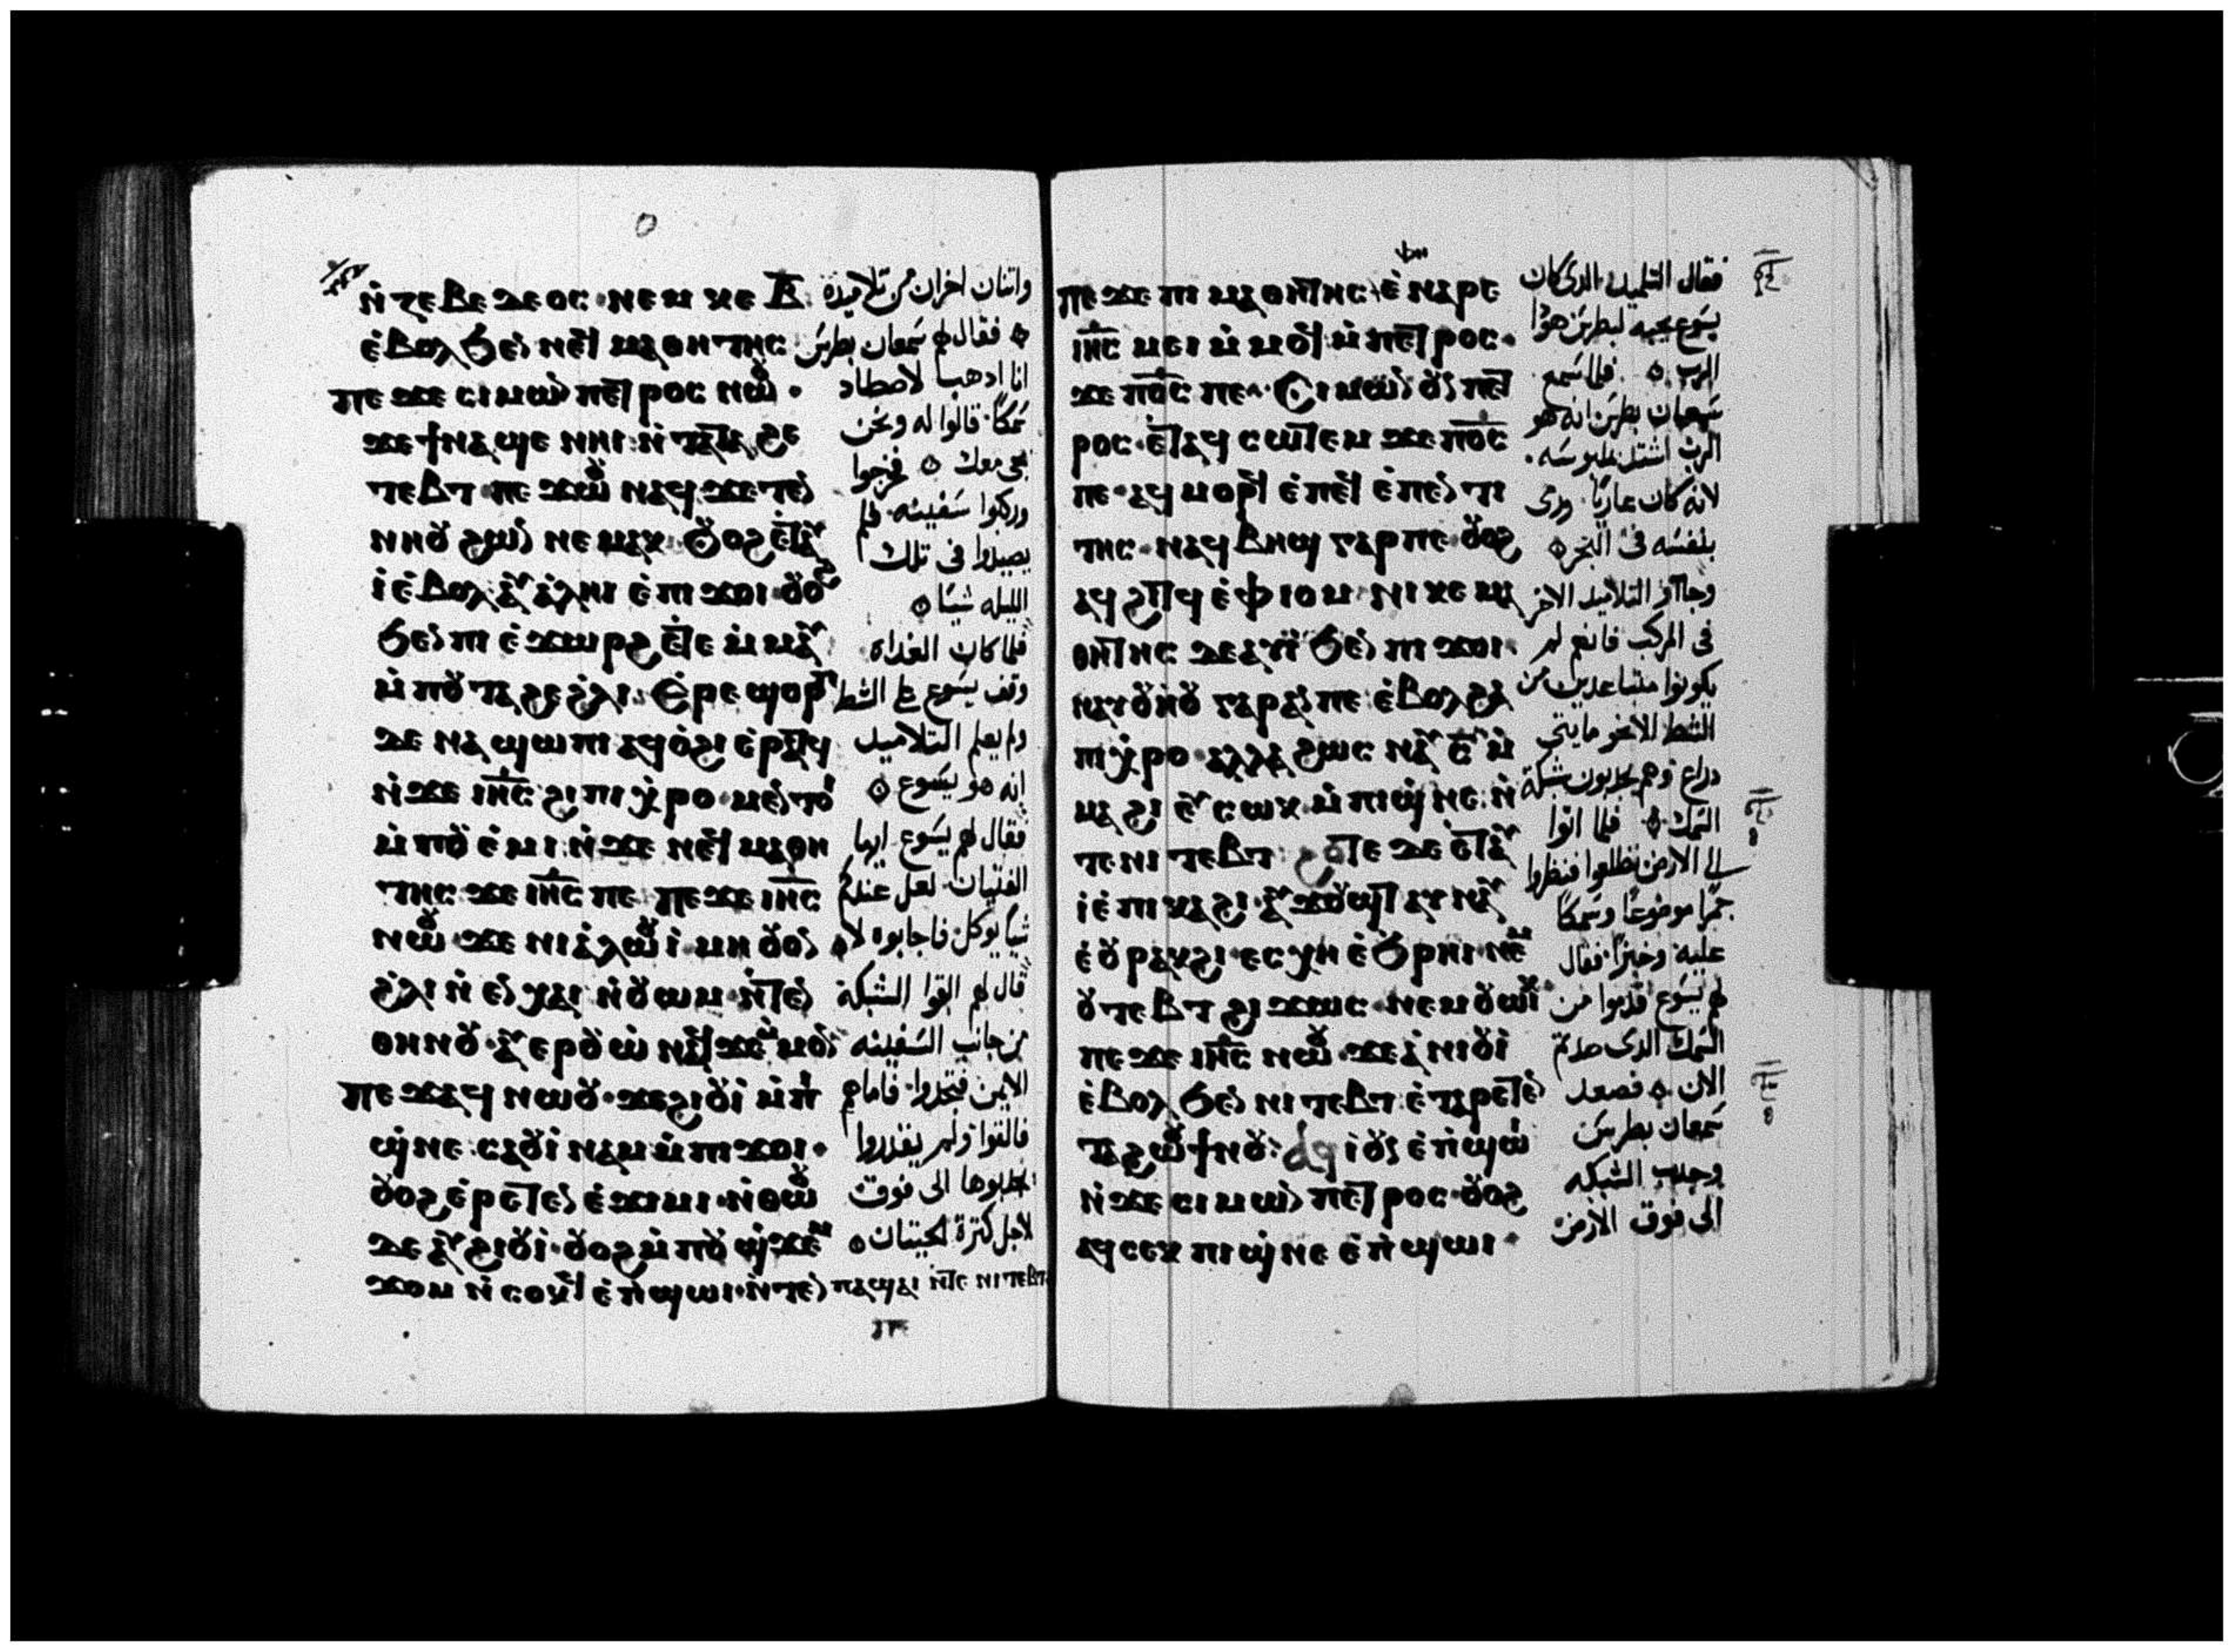 ⲛ̀ⲍⲉⲃⲉⲇⲉⲟⲥ·ⲛⲉⲙ ⲕⲉ ⲃ̅
ⲉ̀ⲃⲟⲗϧⲉⲛ ⲛⲉϥⲙⲁⲑⲏⲧⲏⲥ
ⲡⲉϫⲉ ⲥⲓⲙⲱⲛ ⲡⲉⲧⲣⲟⲥ ⲛⲱⲟⲩ·
ϫⲉϯⲛⲁϣⲉ ⲛⲏⲓ ⲛ̀ⲧⲁⲧⲁϩⲉ
ⲧⲉⲃⲧ·ⲡⲉϫⲱⲟⲩ ⲛⲁϥ·ϫⲉⲧⲉⲛ
ⲛⲏⲟⲩ ϩⲱⲛ ⲛⲉⲙⲁⲕ·ⲟⲩⲟϩ ⲉⲧⲁⲩ
ⲓ̀ ⲉ̀ⲃⲟⲗ ⲁⲩⲁ̀ⲗⲏⲓ ⲉ̀ⲡⲓϫⲟⲓ·ⲟⲩⲟϩ
ϧⲉⲛ ⲡⲓ ⲉ̀ϫⲱⲣϩ ⲉⲧⲉ ⲙ̀ⲙⲁⲩ
ⲙ̀ⲡⲟⲩⲧⲁϩⲉ ϩ̀ⲗⲓ· ⲉⲣⲉ ϣⲟⲣⲡ
ⲇⲉ ⲛⲁϣⲱⲡⲓ ⲁϥⲟ̀ϩⲓ ⲉ̀ⲣⲁⲧϥ
ⲛ̀ϫⲉ ⲓⲏ̅ⲥ̅ ϩⲓ ⲡⲓⲭ̀ⲣⲟ·ⲙⲉⲛⲧⲟⲓ
ⲙ̀ⲡⲟⲩⲉ̀ⲙⲓ ⲛ̀ϫⲉ ⲛⲉϥⲙⲁⲑⲏ
ⲧⲏⲥ ϫⲉ ⲓⲏ̅ⲥ̅ ⲡⲉ·ⲡⲉϫⲉ ⲓⲏ̅ⲥ̅
ⲛⲱⲟⲩ·ϫⲉ ⲛⲓⲁ̀ⲗⲱⲟⲩⲓ̀·ⲙⲏ ⲟⲩⲟⲛ
ϩ̀ⲗⲓ ⲛ̀ ⲉⲛⲭⲁⲓ ⲛ̀ⲟⲩⲱⲙ·ⲛ̀ⲧⲉⲛ
ⲑⲏⲛⲟⲩ·ⲁⲩⲉⲣⲟⲩⲱ̀ ⲛⲁϥϫⲉ ⲙ̀ⲙⲟⲛ
ⲡⲉϫⲁϥ ⲛⲱⲟⲩ·ϫⲉϩⲓⲟⲩⲓ̀ ⲙ̀ⲡⲓ
ϣ̀ⲛⲉ·ⲥⲁⲟⲩⲓ̀ⲛⲁⲙ ⲙ̀ⲡⲓϫⲟⲓ·
ⲟⲩⲟϩ ⲉ̀ⲣⲉⲧⲉⲛ ⲉ̀ϫⲓⲙⲓ·ⲛ̀ⲑⲱⲟⲩ
ⲇⲉ ⲁⲩϩⲓⲟⲩⲓ̀·ⲟⲩⲟϩ ⲙ̀ⲡⲟⲩϣ̀ϫⲉⲙ
ϫⲟⲙ ⲛ̀ⲥⲟⲕϥ ⲉ̀ⲡ̀ϣⲱⲓ·ⲛ̀ⲧⲉⲛ ⲡⲁϣⲁⲓ ⲛ̀ⲧⲉ ⲛⲓⲧⲉⲃⲧ
ⲡⲉ
واثنان اخران من تلاميذه
فقال لهم سمعان بطرس
انا اذهب لاصطاد
سمكًا· قالوا له ونحن
نجى معك فخرجوا
وركبوا سفينه فلم
يصيدوا فى تلك
الليله شيًا
فلما كان الغداه
وقف يسوع على الشط
ولم يعلم التلاميذ
انه هو يسوع
فقال لهم يسوع ايها
الفتيان لعل عندكم
شيا يوكل فاجابوه لا
قال لهم القوا الشبكة
من جانب السفينه
الايمن فتجدوا· فاما هم
فالقوا ولم يقدروا
الى فوق
لاجل كثرة الحيتان
ⲡⲉϫⲉ ⲡⲓ ⲙⲁⲑⲏⲧⲏⲥ ⲉ̀ⲛⲁⲣⲉ
ⲓⲏ̅ⲥ̅ ⲙⲉⲓ ⲙ̀ⲙⲟϥ ⲙ̀ⲡⲉⲧⲣⲟⲥ·
ϫⲉ ⲡϭⲟⲓⲥ ⲡⲉ·ⲥⲓⲙⲱⲛ ⲟⲩⲛ ⲡⲉⲧ
ⲣⲟⲥ·ⲉⲧⲁϥ ⲥⲱⲧⲉⲙ ϫⲉ ⲡϭⲟⲓⲥ
ⲡⲉ·ⲁϥⲙⲟⲣϥ ⲉ̀ⲡⲉϥ ⲉ̀ⲡⲉⲛⲧⲓ
ⲧⲏⲥ·ⲛⲁϥⲃⲏϣ ⲅⲁⲣⲡⲉ·ⲟⲩⲟϩ
ⲁϥϩⲓⲧϥ ⲉ̀ⲫⲓⲟⲙ·ⲛⲓⲕⲉⲙⲁ
ⲑⲏⲧⲏⲥ ⲇⲉⲁⲩⲓ̀ ϧⲉⲛ ⲡⲓϫⲟⲓ·
ⲛⲁⲩⲟⲩⲏⲟⲩ ⲅⲁⲣⲁⲛⲡⲉ ⲉ̀ⲃⲟⲗϩⲁ
ⲡⲓⲭ̀ⲣⲟ·ⲁⲗⲗⲁ ϩⲱⲥ ⲛⲁⲩ ⲥ̅ ⲙ̀
ⲙⲁϩⲓ ⲉⲩⲥⲱⲕ ⲙ̀ⲡⲓϣ̀ⲛⲉ·ⲛ̀
ⲧⲉⲛⲓⲧⲉⲃⲧ ϩⲟⲧⲉ ⲇⲉ ⲉⲧⲁⲩ
ⲓ̀ ⲉ̀ⲡⲓⲕⲁϩⲓ·ⲁⲩϫⲟⲩϣⲧ ⲁⲩⲛⲁⲩ
ⲉ̀ⲟⲩⲣⲁⲕϩⲓ·ⲉⲥⲭⲏ ⲉ̀ϧⲣⲏⲓ·ⲛⲉⲙ
ⲟⲩⲧⲉⲃⲧ ϩⲓϫⲱⲥ·ⲛⲉⲙⲟⲩⲱⲓⲕ
ⲡⲉϫⲉ ⲓⲏ̅ⲥ̅ ⲛⲱⲟⲩ·ϫⲉⲁ̀ⲛⲓⲟⲩⲓ̀
ⲉ̀ⲃⲟⲗ ϧⲉⲛ ⲛⲓⲧⲉⲃⲧ·ⲉ̀ⲧⲁⲣⲉⲧⲉⲛ
ⲧⲁϩⲱⲟⲩϯⲛⲟⲩ·ⲁϥ ⲓ̀ ⲟⲩⲛ ⲉ̀ⲡ̀ϣⲱⲓ
ⲛ̀ϫⲉ ⲥⲓⲙⲱⲛ ⲡⲉⲧⲣⲟⲥ·ⲟⲩⲟϩ
ⲁϥⲥⲉⲕ ⲡⲓϣ̀ⲛⲉ ⲉ̀ⲡ̀ϣⲱⲓ·
فقال التلميذ الذى كان
يسوع يحبه لبطرس هوذا
الرب فلما سمع
سمعان بطرس انه هو
الرب اشتد بلبوسه·
لانه كان عاريًا· ورمى
بنفسه فى البحر
وجاآوا التلاميذ الاخر
فى المركب فانهم لم
يكونوا متباعدين من
الشط الا نحو مايتى
دراع وهم يجذبون شبكة
السمك فلما اتوا
الى الارض تطلعوا فنظروا
جمرًا موضوعًا وسمكًا
عليه وخبزًا· فقال
لهم يسوع قدموا من
السمك الذى صدتم
الان فصعد
سمعان بطرس
وجذب الشبكه
الى فوق الارض